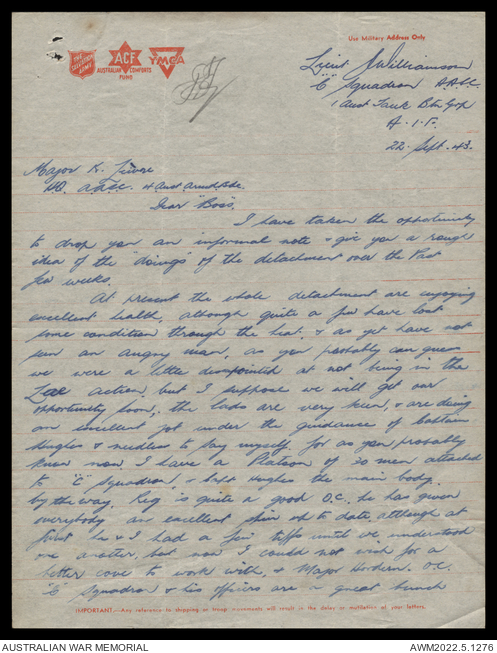 Use Military Address Only
THE SALVATION ARMY
ACF
AUSTRALIAN COMFORTS
FUND
YMCA
Lieut Williamson
"C" Squadron A.A.S.C.
1 Aust Tank Bn Gp
A.I.F.
22 Sept. 43.
Major K.
HQ. A.A.S.C. 4 Aust Armd Bde.
Dear "Boss",
I have taken the opportunity
to drop you an informal note & give you a rough
idea of the "doings" of the detachment over the past
few weeks.
At present the whole detachment are enjoying
excellent health, although quite a few have lost
some condition through the heat, & as yet have not
seen an angry man, as you probably can guess
we were a little disappointed at not being in the
Lae action, but I suppose we will get our
opportunity soon, the lads are very keen, & are doing
an excellent job under the guidance of Captain
Hughes & needless to say myself for as you probably
know now, I have a Platoon of 30 men attached
to "C" Squadron, & Capt Hughes the main body.
by the way, Reg is quite a good O.C. he has given
everybody an excellent spin up to date, although at
first he & I had a few tiffs until we understood
one another, but now I could not wish for a
better cove to work with, & Major Hordern. O.C.
"C" Squadron & his officers are a great bunch
IMPORTANT—Any reference to shipping or troop movements will result in the delay or mutilation of your letters.
AUSTRALIAN WAR MEMORIAL
AWM2022.5.1276